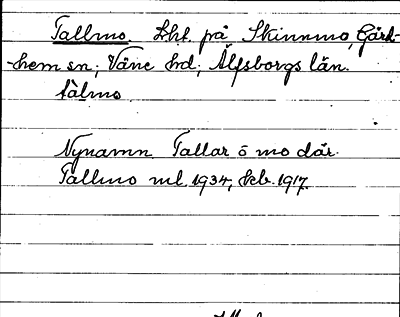 Tallmo. Lht. på Skinnmo, Gärd-
hem sn; Väne hd; Älfsborgs län.
tàlmo
Nynamn. Tallar o mo där.
Tallmo ml. 1934, Geb. 1917.